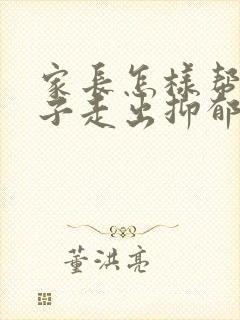 家長怎樣幫
子走出抑郁
董洪亮